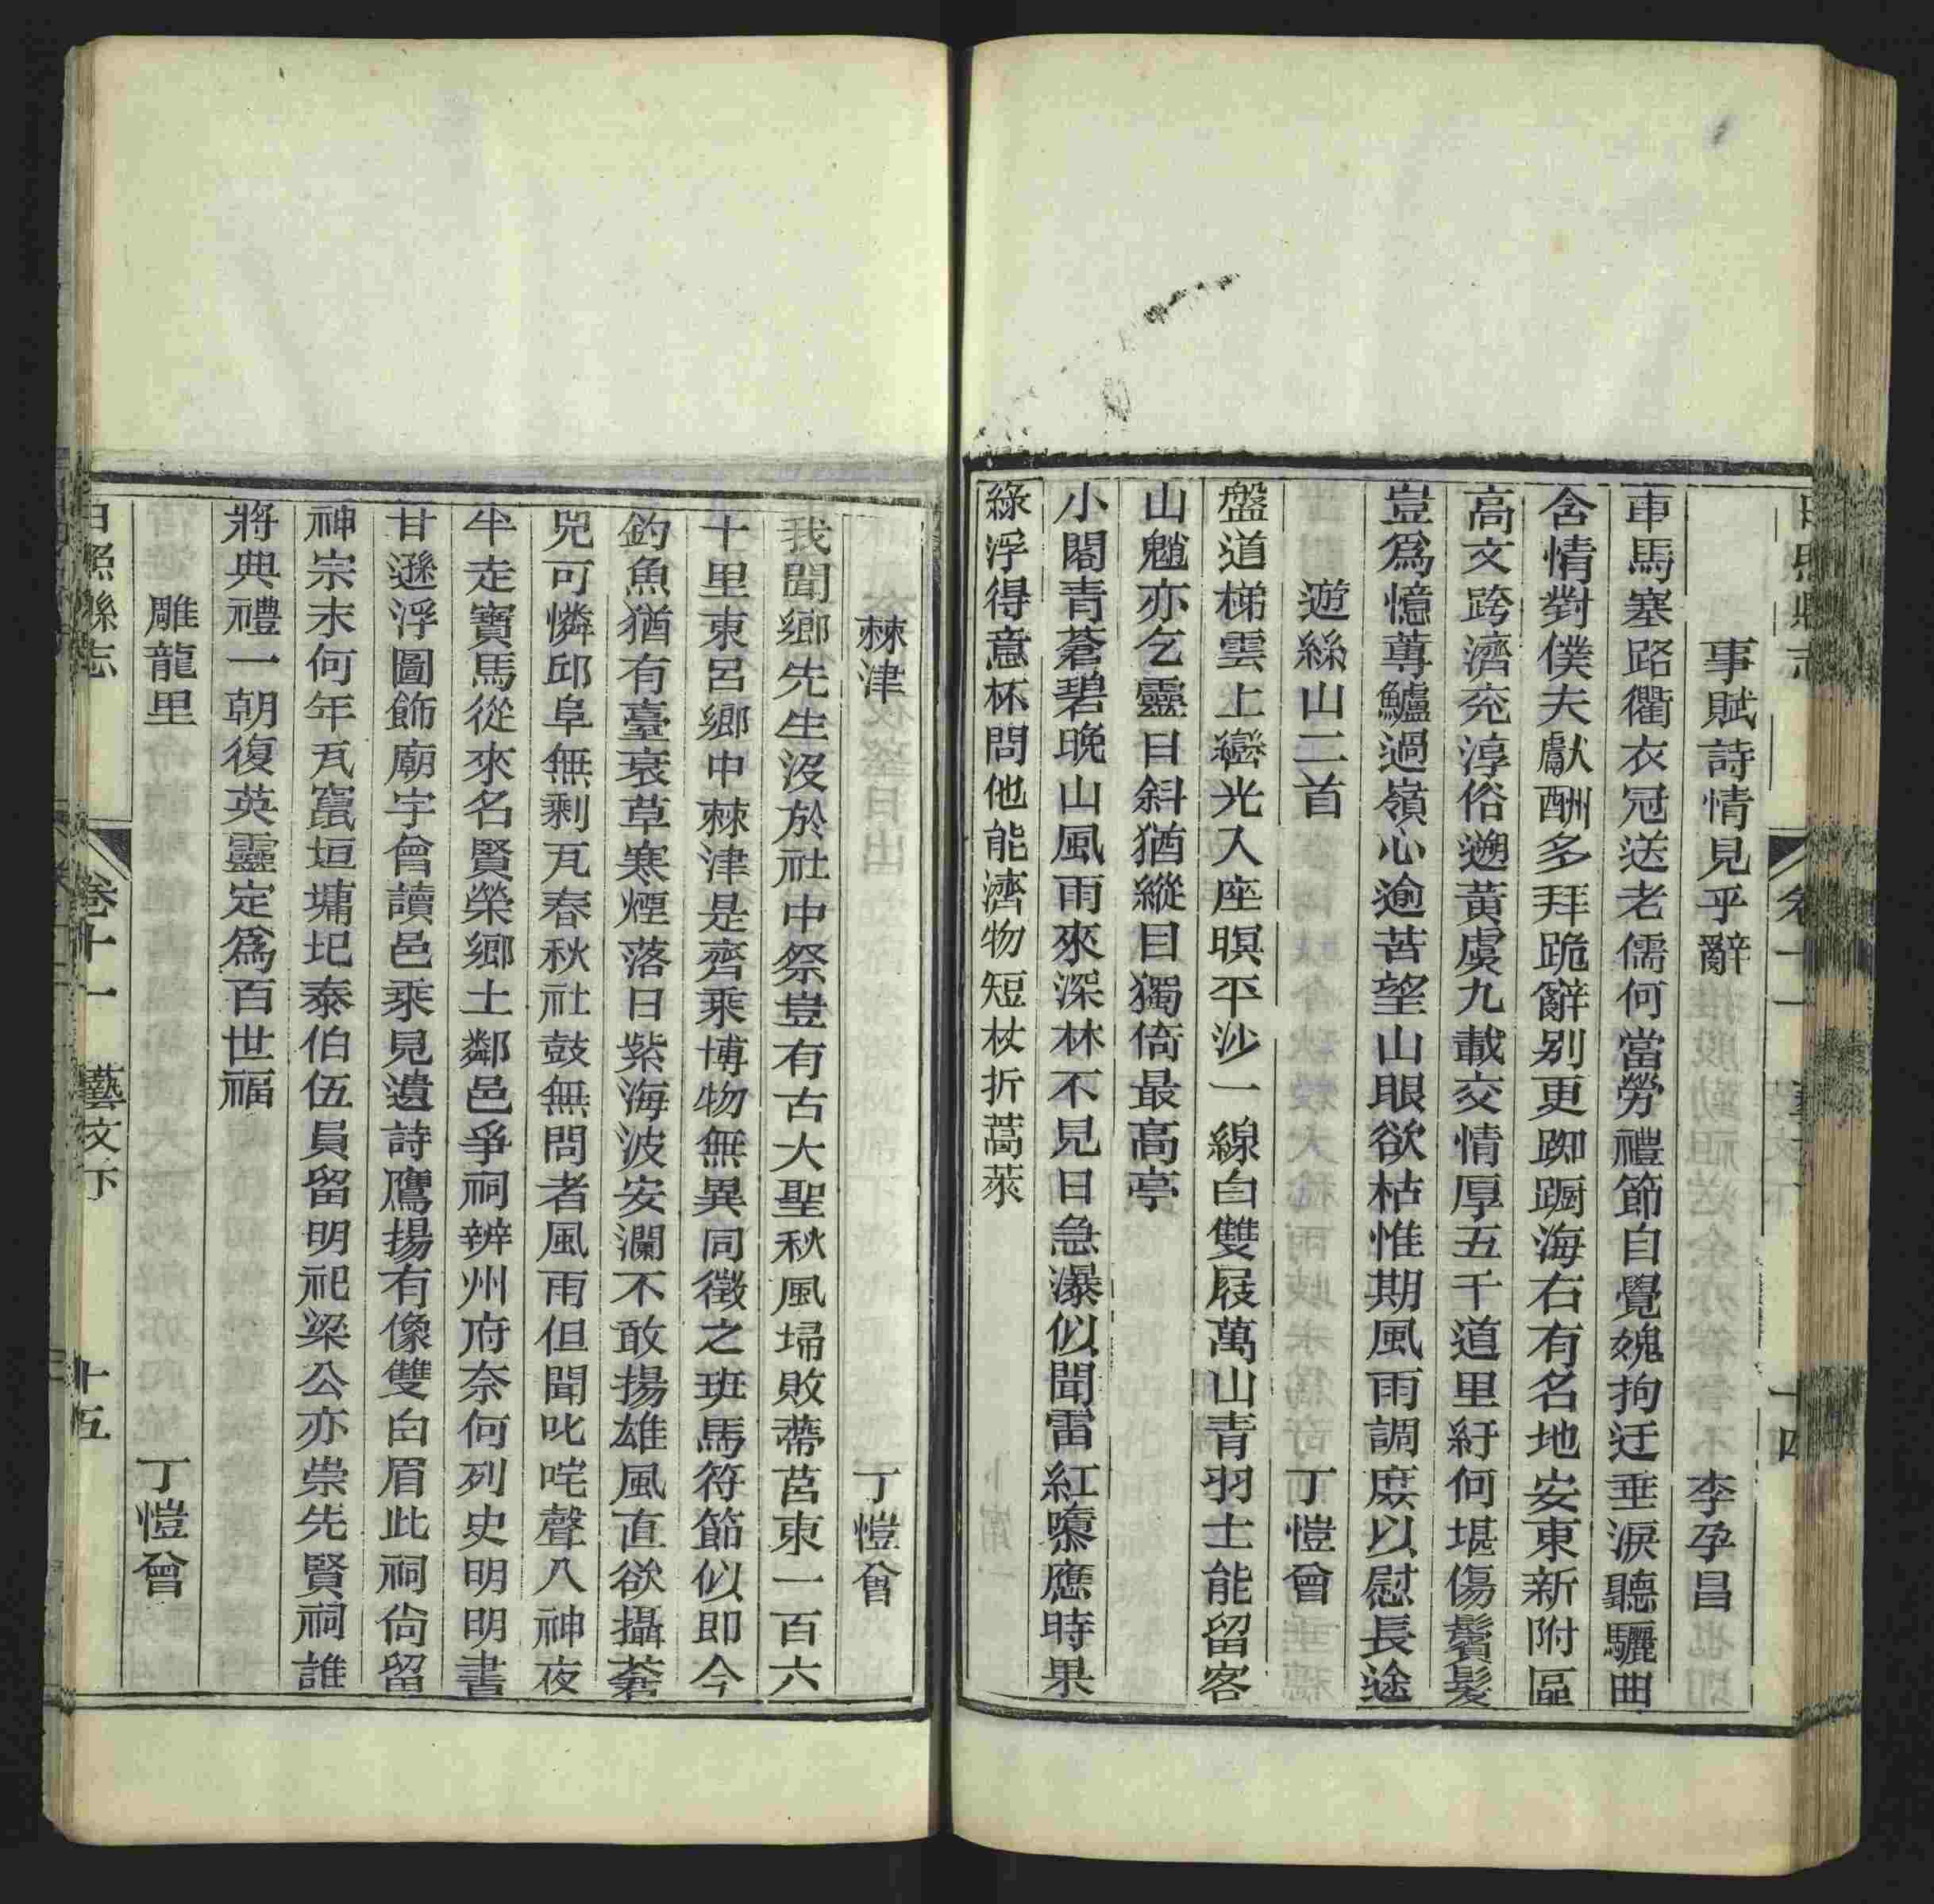 日照縣志 卷十一 藝文下 十四
事賦詩情見乎辭 李孕昌
車馬塞路衢衣冠送老儒何當勞禮節自覺媿拘迂垂淚聽驪曲
含情對僕夫獻酬多拜跪辭別更踟躕海右有名地安東新附區
高文跨濟兖淳俗遡黃虞九載交情厚五千道里紆何堪傷鬢髮
豈爲憶蓴鱸過嶺心逾苦望山眼欲枯惟期風雨調庶以慰長途
遊絲山二首 丁愷曾
盤道梯雲上巒光入座暝平沙一線白雙屐萬山青羽士能留客
山魈亦乞靈日斜猶縱目獨倚最高亭
小閣青蒼碧晚山風雨來深林不見日急瀑似聞雷紅墮應時果
綠浮得意杯問他能濟物短杖折蒿萊
棘津 丁愷曾
我聞鄉先生沒於社中祭豈有古大聖秋風埽敗蔕莒東一百六
十里東呂鄉中棘津是齊乘博物無異同徵之班馬符節似即今
釣魚猶有臺衰草寒煙落日紫海波安瀾不敢揚雄風直欲攝蒼
兕可憐邱阜無剩瓦春秋社鼓無問者風雨但聞叱咤聲八神夜
半走寶馬從來名賢榮鄉土鄰邑爭祠辨州府奈何列史明明書
甘遜浮圖飾廟宇曾讀邑乘見遺詩鷹揚有像雙白眉此祠尙留
神宗末何年瓦竄垣墉圮泰伯伍員留明祀梁公亦崇先賢祠誰
將典禮一朝復英靈定爲百世福
雕龍里 丁愷曾
日照縣志 卷十一 藝文下 十五